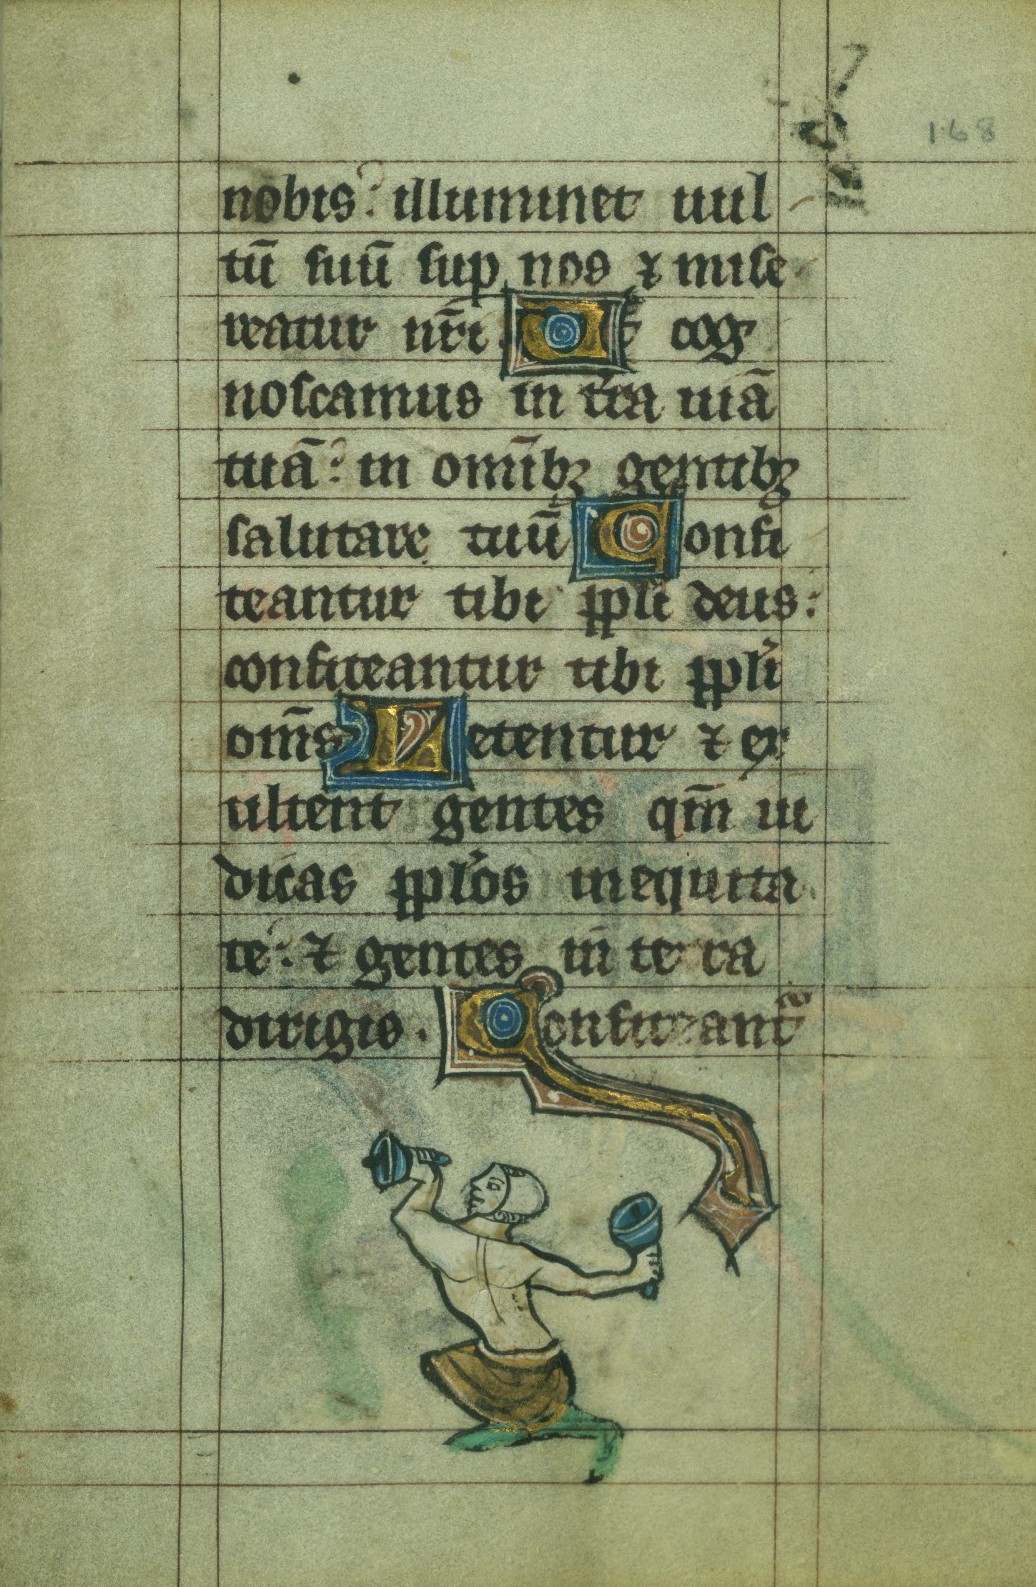 168
nobis: illuminet uul
tū suū sup nos ⁊ mise
reatur nr̄i Vt cog
noscamus in t̄ra uiā
tuā: in omīb; gentib;
salutare tuū Confi
teantur tibi ppl̄i deus:
confiteantur tibi ppl̄i
om̄s Letentur ⁊ ex
ultent gentes qm̄ iu
dicas ppl̄os inequita
te: ⁊ gentes in terra
dirigis. Confiteant᷑